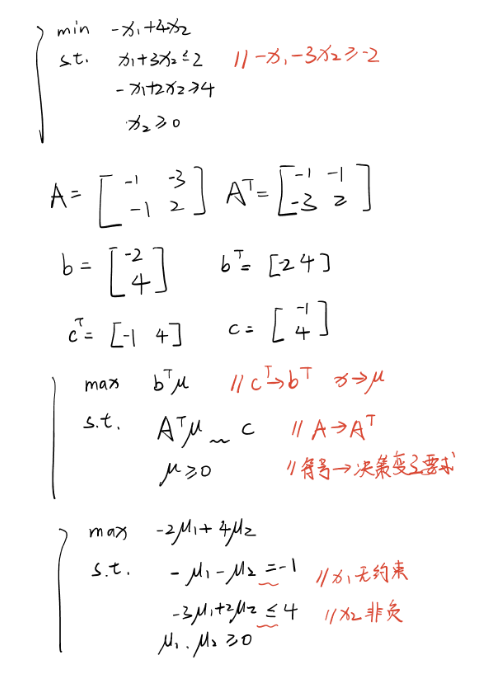 min -x₁+4x₂
s.t. x₁+3x₂≤2 // -x₁-3x₂≥-2
-x₁+2x₂≥4
x₂≥0
A = [-1 -3; -1 2] Aᵀ = [-1 -1; -3 2]
b = [-2; 4] bᵀ = [-2 4]
cᵀ = [-1 4] c = [-1; 4]
max bᵀμ // cᵀ→bᵀ x→μ
s.t. Aᵀμ ~ c // A→Aᵀ
μ≥0 // 符号→决策变了要求
max -2μ₁+4μ₂
s.t. -μ₁-μ₂=-1 // x₁无约束
-3μ₁+2μ₂≤4 // x₂非负
μ₁.μ₂≥0